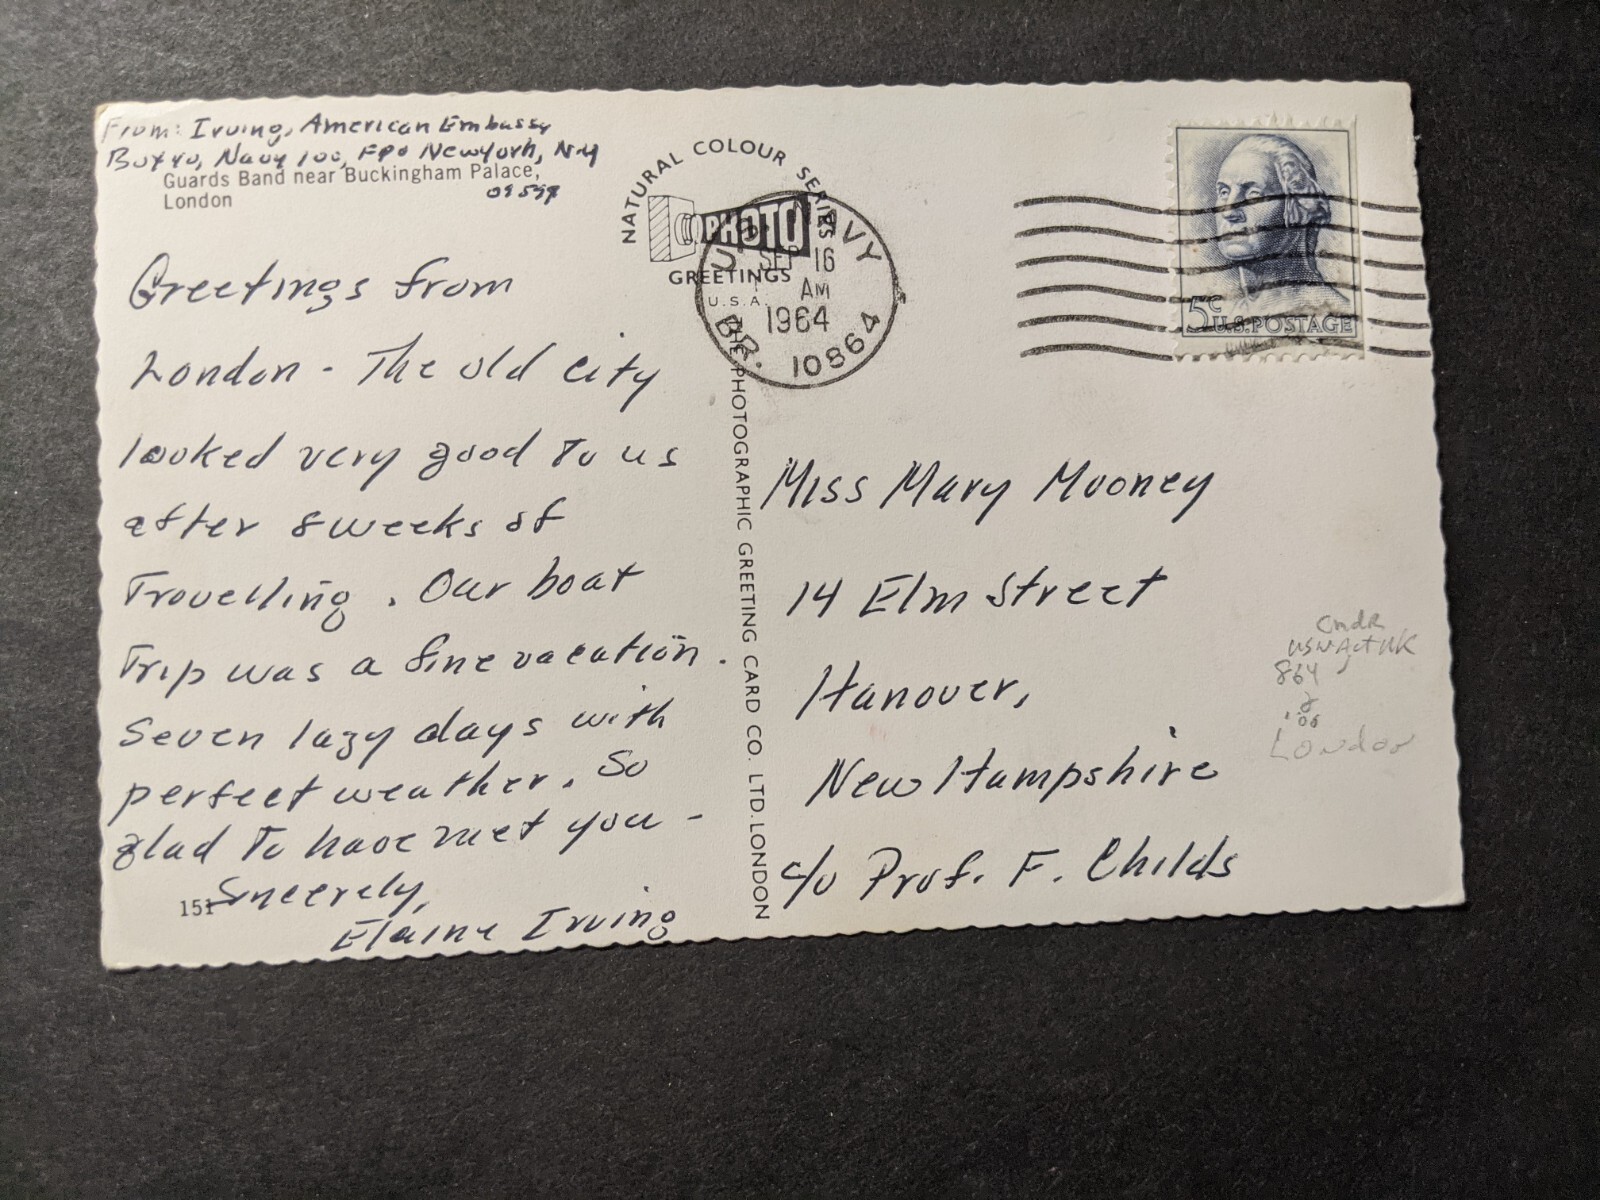 From: Irving, American Embassy
Box 40, Navy 100, FPO New York, N.Y
Guards Band near Buckingham Palace,
London
Greetings from
London - The old city
looked very good to us
after 8 weeks of
Travelling. Our boat
Trip was a fine vacation.
Seven lazy days with
perfect weather. So
glad to have met you -
Sincerely,
Elaine Irving
151
NATURAL COLOUR SERIES
PHOTO
GREETINGS
U.S.A.
THE PHOTOGRAPHIC GREETING CARD CO. LTD. LONDON
U.S. NAVY
SEP 16
AM
1964
BR. 10864
5c U.S. POSTAGE
Miss Mary Mooney
14 Elm Street
Hanover,
New Hampshire
c/o Prof. F. Childs
Cmdr
USN Act UK
864
London